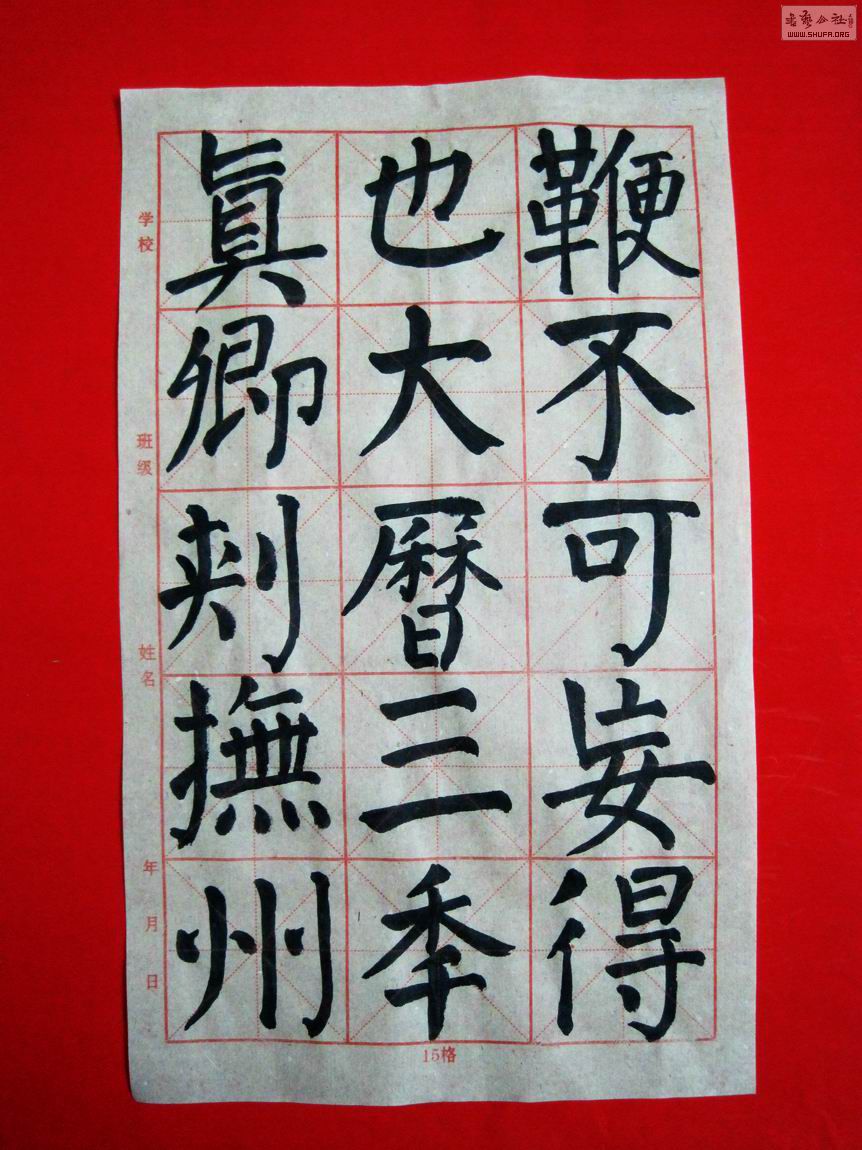 鞭不可妄得
也大曆三秊
眞卿刾撫州
学校
班级
姓名
年
月
日
15格
書藝公社
WWW.SHUFA.ORG